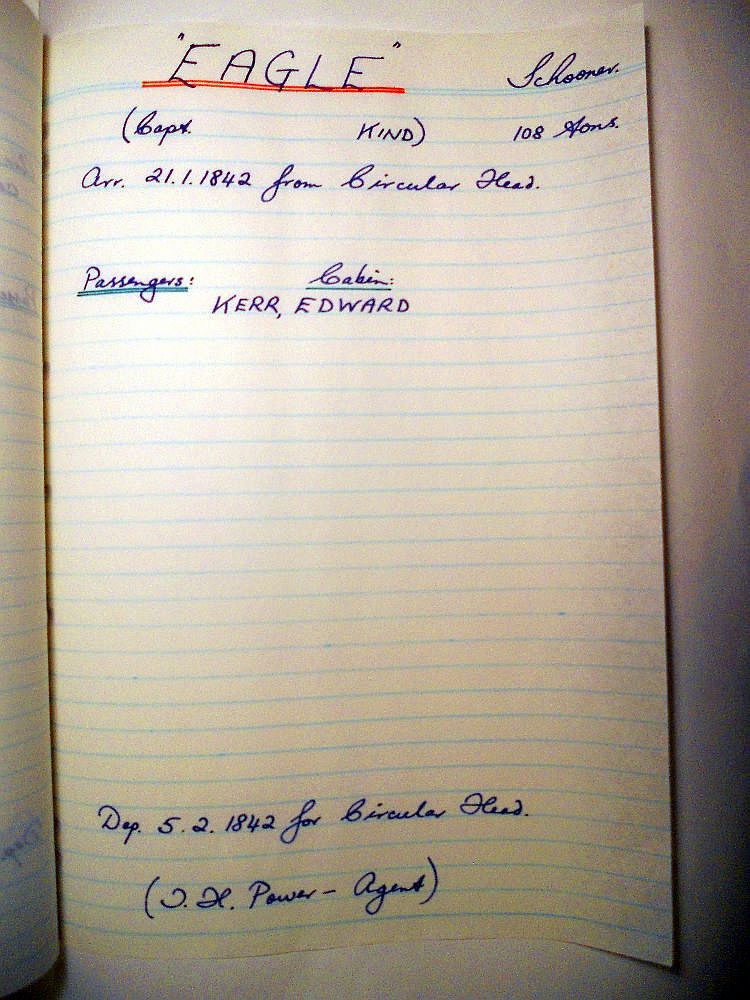 "EAGLE" Schooner.
(Capt. KIND) 108 tons.
Arr. 21.1.1842 from Circular Head.
Passengers: Cabin:
KERR, EDWARD
Dep. 5.2.1842 for Circular Head.
(J. H. Power - Agent)